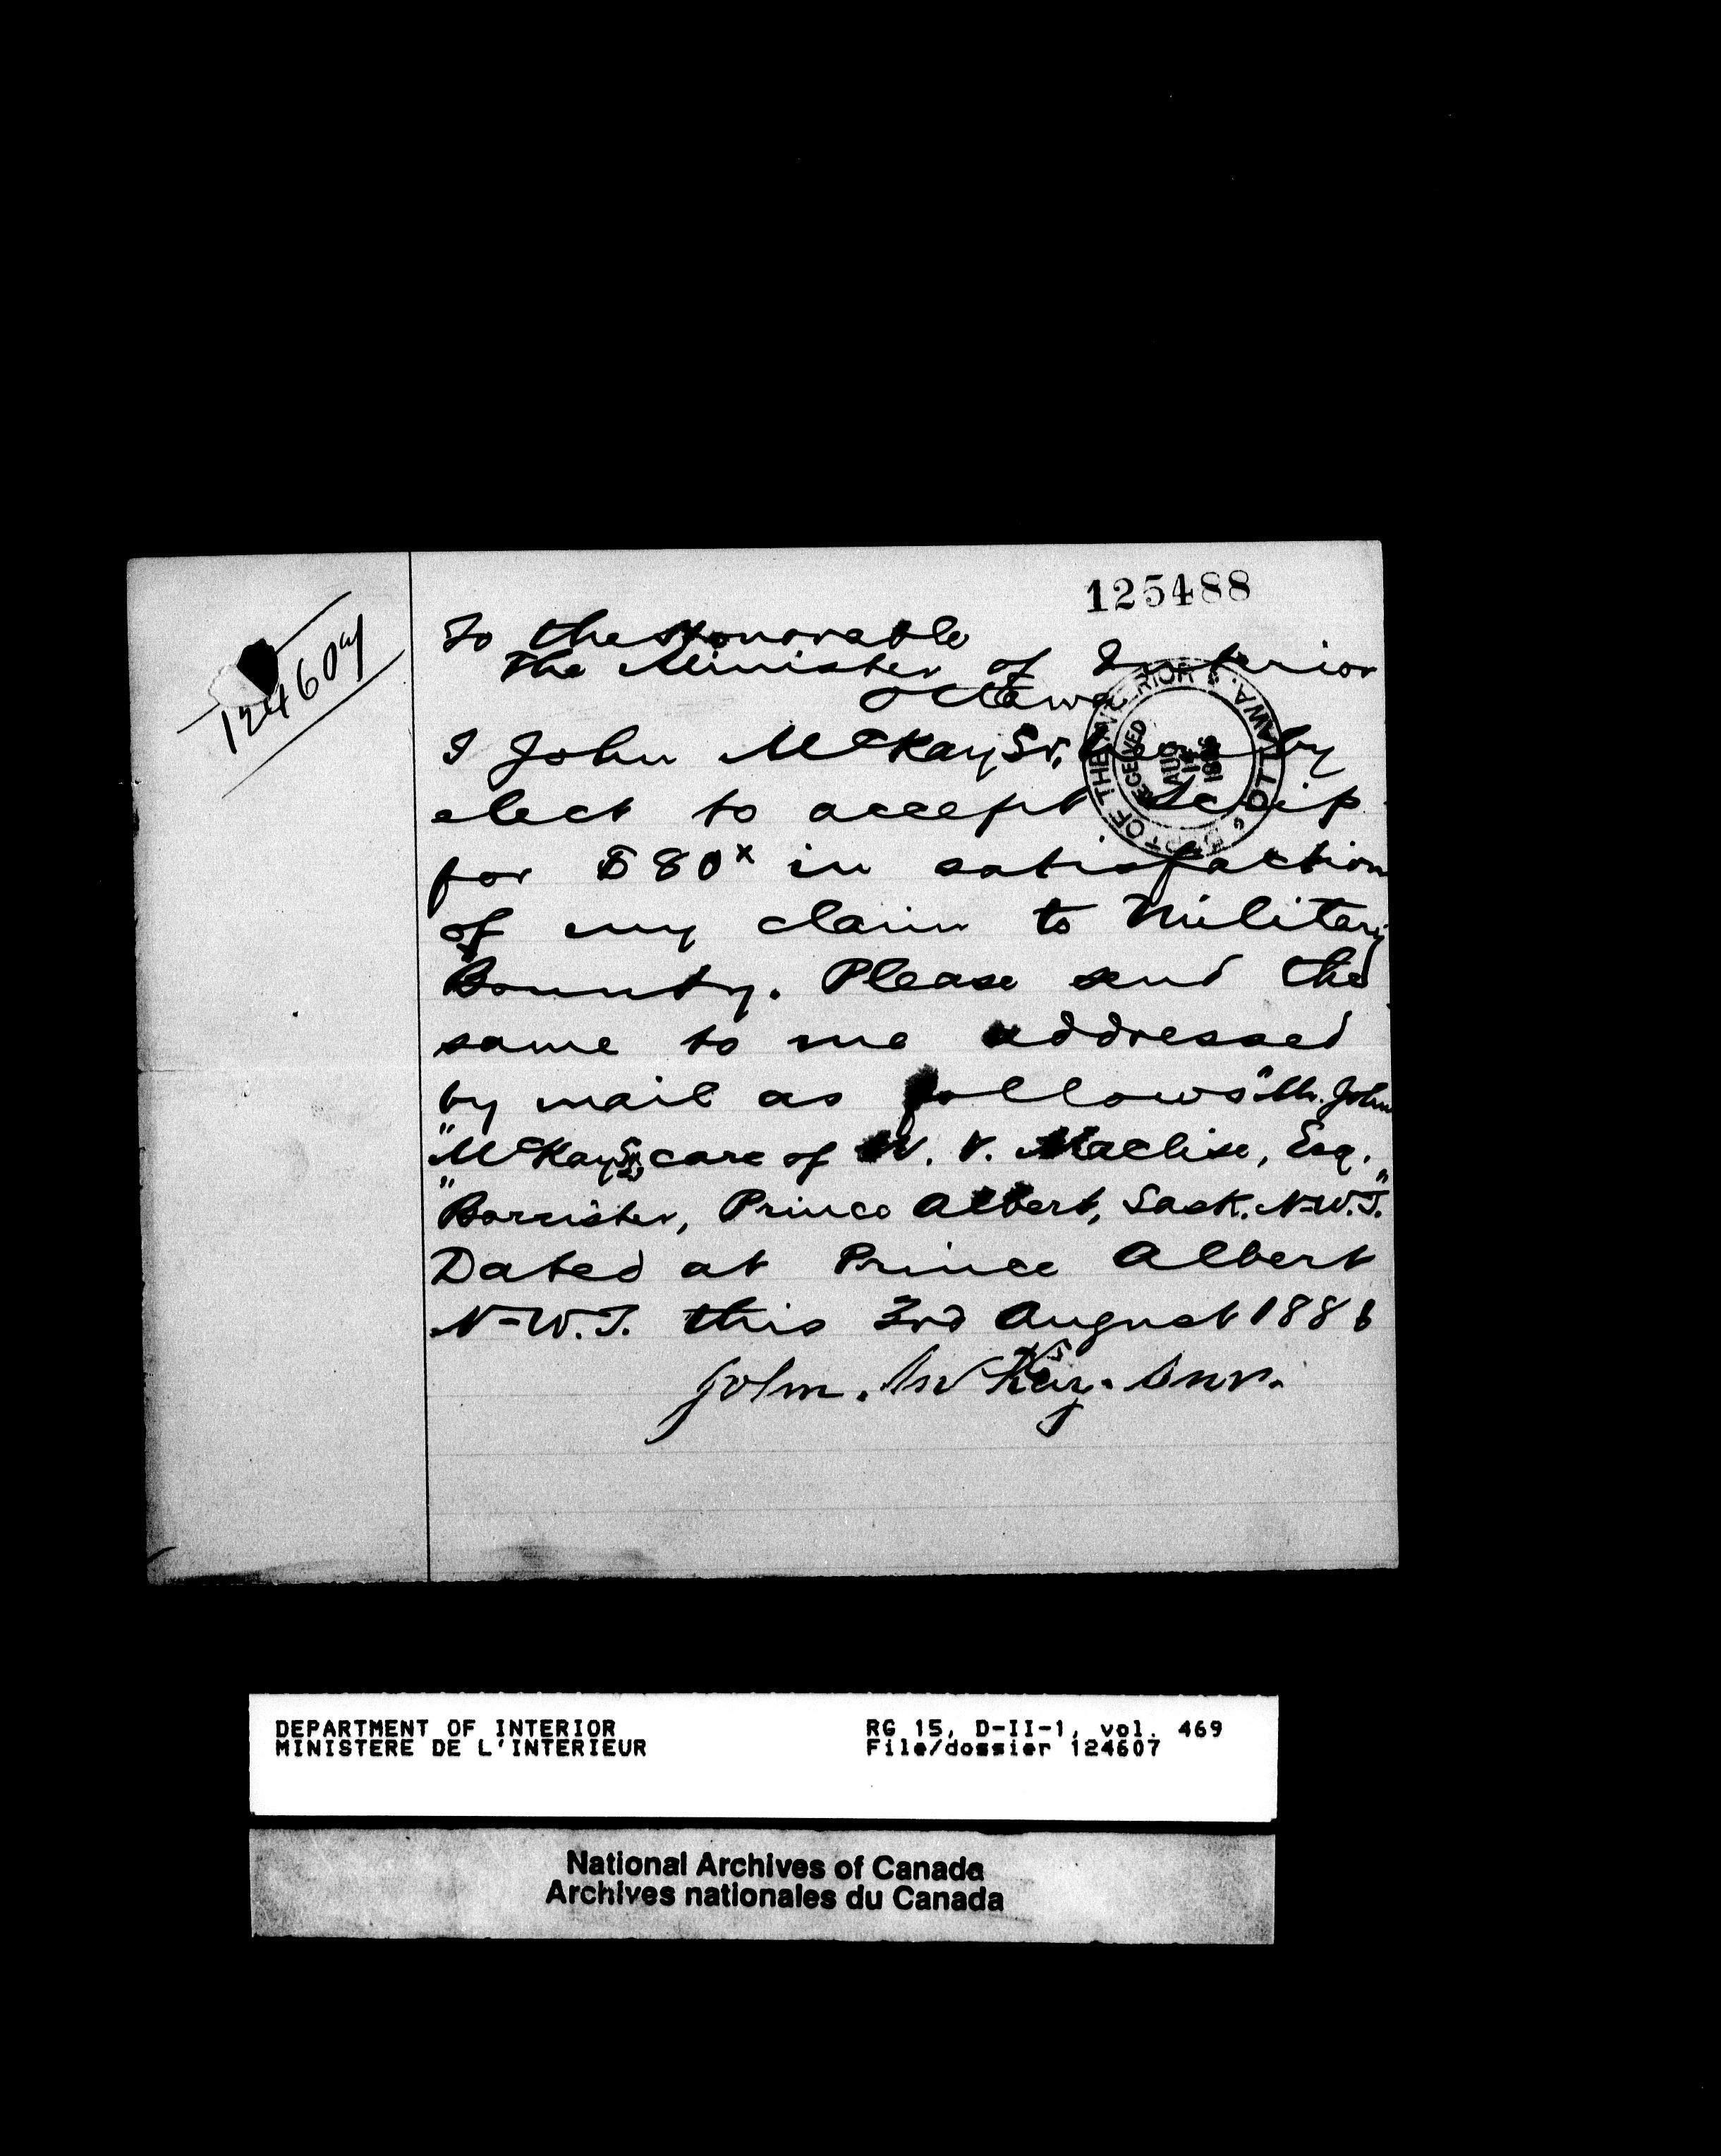 125488
124607
To the Honorable
The Minister of Interior
Ottawa
I John McKay, Sr. hereby
elect to accept Scrip
for $80x in satisfaction
of my claim to Military
Bounty. Please send the
same to me addressed
by mail as follows "Mr. John
"McKay Sr care of W. V. Maclise, Esq.
"Barrister, Prince Albert, Sask. N-W.T."
Dated at Prince Albert
N-W.T. this 3rd August 1886
John. McKay. Snr.
DEPT OF THE INTERIOR OTTAWA.
RECEIVED
AUG
1886
DEPARTMENT OF INTERIOR
MINISTERE DE L'INTERIEUR
RG 15, D-II-1, vol. 469
File/dossier 124607
National Archives of Canada
Archives nationales du Canada